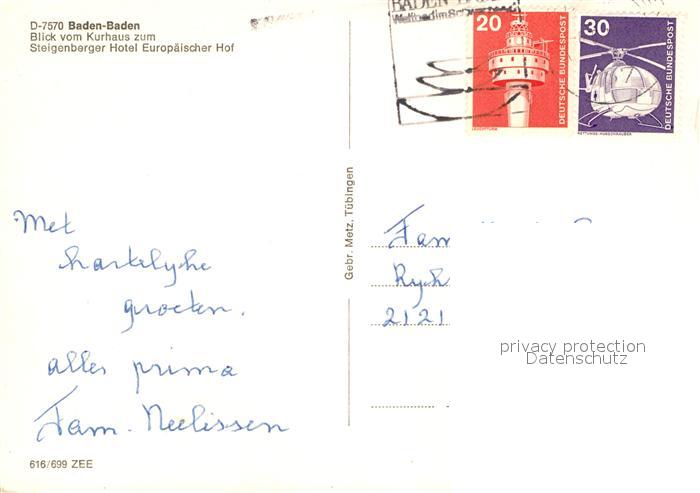 D-7570 Baden-Baden
Blick vom Kurhaus zum
Steigenberger Hotel Europäischer Hof
BADEN
20
DEUTSCHE BUNDESPOST
LEUCHTTURM
30
DEUTSCHE BUNDESPOST
RETTUNGS-HUBSCHRAUBER
Met
hartelyke
groeten.
alles prima
Fam. Neelissen
Gebr. Metz, Tübingen
Fam
2121
privacy protection
Datenschutz
616/699 ZEE